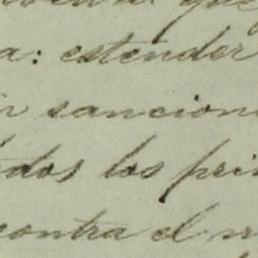 que
a: estender
sancion
dos los pri
contra el